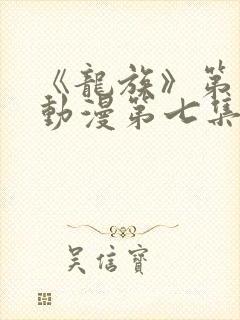 《龍族》第
動漫第七集
吴信寶